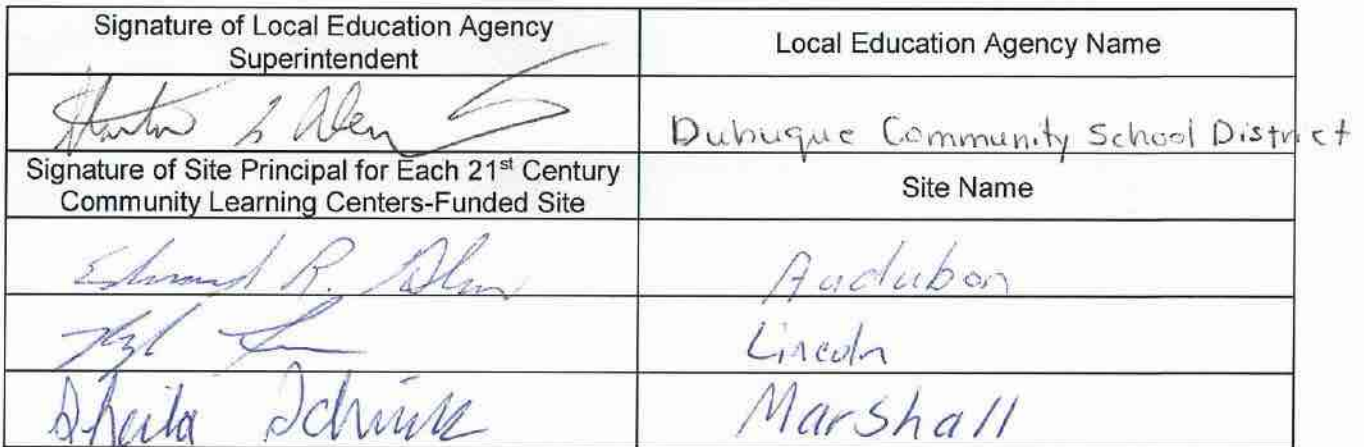 Signature of Local Education Agency
Superintendent
Local Education Agency Name
Dubuque Community School District
Signature of Site Principal for Each 21st Century
Community Learning Centers-Funded Site
Site Name
Edward R.
Audubon
Lincoln
Sheila Schmitz
Marshall